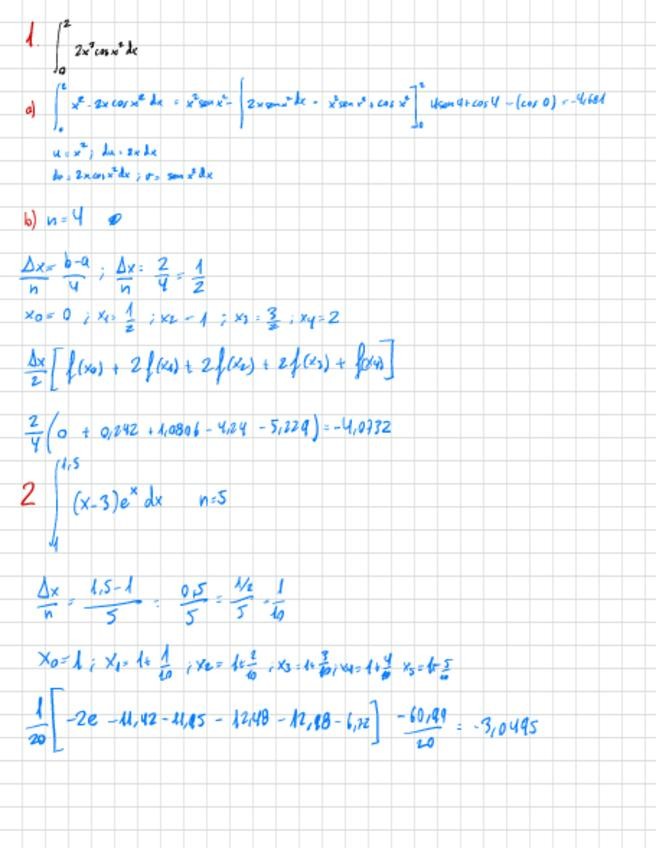 1. ∫₀² 2x³cosx²dx
a) ∫₀² x²·2xcosx²dx = x²senx² - ∫2xsenx²dx = x²senx²+cosx²]₀² 4sen4+cos4-(cos0)=-4,681
u=x²; du=2xdx
dv=2xcosx²dx; v=senx²dx
b) n=4
Δx/n = b-a/4 ; Δx/n = 2/4 = 1/2
x0=0 ; x1=1/2 ; x2=1 ; x3=3/2 ; x4=2
Δx/2 [f(x0) + 2f(x1) + 2f(x2) + 2f(x3) + f(x4)]
2/4 (0 + 0,242 + 1,0806 - 4,24 - 5,229) = -4,0732
2 ∫₁^1,5 (x-3)eˣ dx n=5
Δx/n = 1,5-1/5 = 0,5/5 = 1/2/5 = 1/10
x0=1 ; x1=1+1/10 ; x2=1+2/10 ; x3=1+3/10 ; x4=1+4/10 x5=1+5/10
1/20 [-2e -11,42 -11,95 - 12,48 - 12,98 - 6,72] -60,99/20 = -3,0495